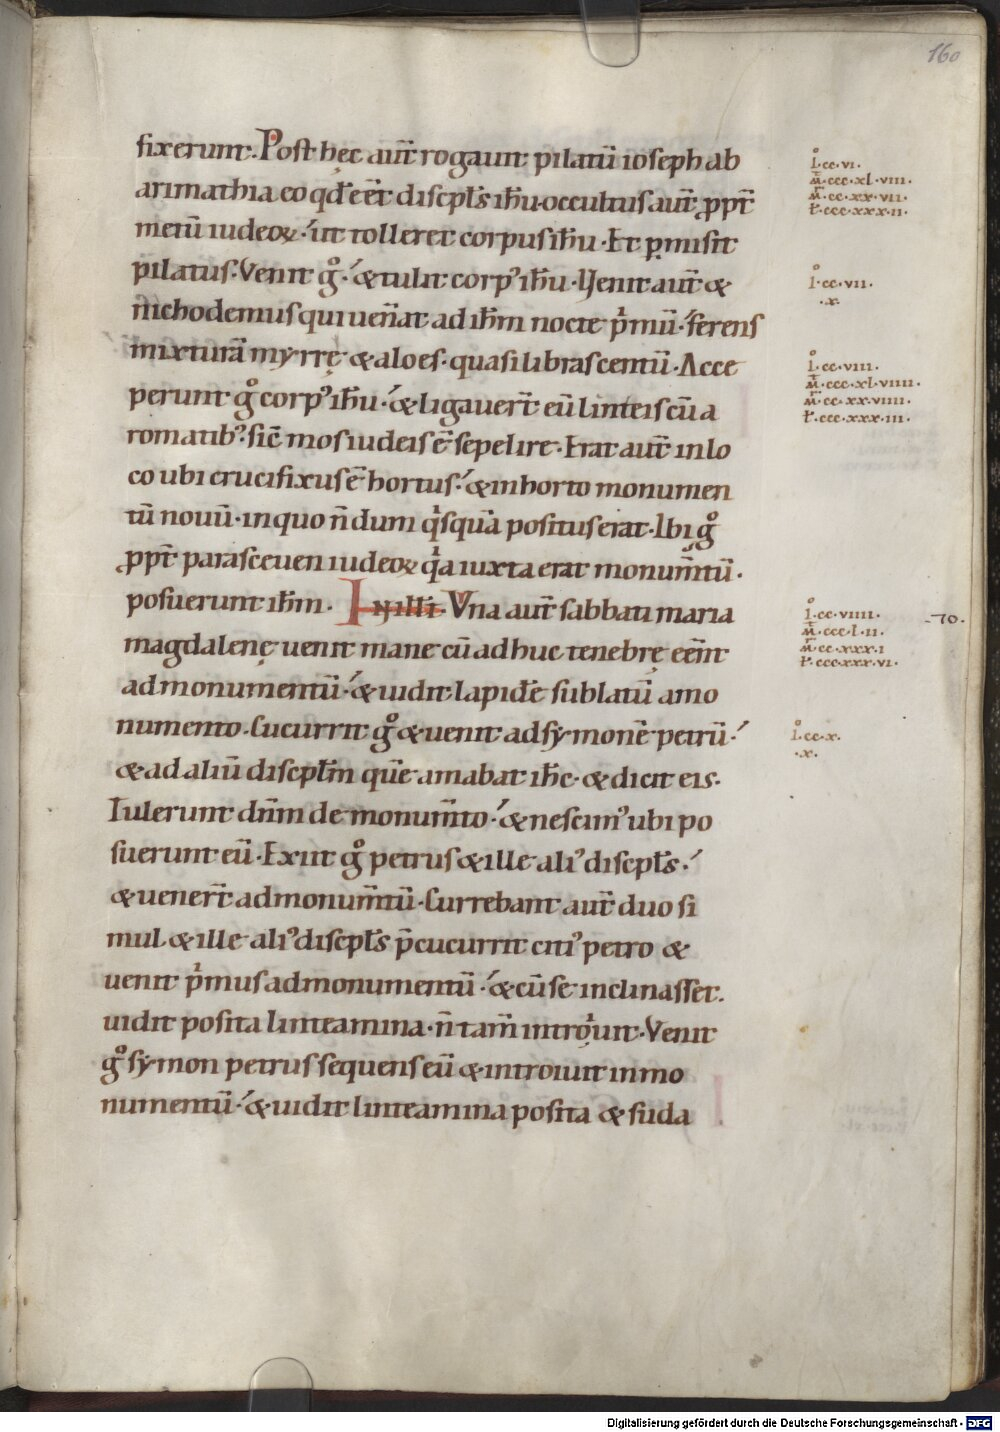 160
fixerunt. Post hęc aut̄ rogauit pilatū ioseph ab
arimathia eo qđ eēt discipl̄s ih̄u. occultus aut̄ ꝓpt̄
metū iudeoꝝ. ut tolleret corpus ih̄u. Et ꝑmisit
pilatus. Venit gͦ. & tulit corpꝰ ih̄u. Venit aut̄ &
nichodemus qui uen̄at ad ih̄m nocte pͥmū. ferens
mixturā myrrę & aloes. quasi libras centū. Acce
perunt gͦ corpꝰ ih̄u. & ligauer̄t eū linteis cū a
romatibꝰ. sic̄ mos iudeis ē sepelire. Erat aut̄ in lo
co ubi crucifixus ē hortus. & in horto monumen
tū nouū. in quo n̄ dum qͥsquā positus erat. Ibi gͦ
ꝓpt̄ parasceuen iudeoꝝ qͥa iuxta erat monum̄tū.
posuerunt ih̄m. IN illi. Vna aut̄ sabbati maria
magdalenę uenit mane cū adhuc tenebrę eēnt
ad monumentū. & uidit lapidē sublatū a mo
numento. Cucurrit gͦ & uenit ad symonē petrū.
& ad aliū discipl̄m quē amabat ih̄c. & dicit eis.
Tulerunt dn̄m de monum̄to. & nescimꝰ ubi po
suerunt eū. Exiit gͦ petrus & ille aliꝰ discipl̄s.
& uener̄t ad monum̄tū. Currebant aut̄ duo si
mul & ille aliꝰ discipl̄s p̄cucurrit citiꝰ petro &
uenit pͥmus ad monumentū. & cū se inclinasset.
uidit posita linteamina. n̄ tam̄ introiuit. Venit
gͦ symon petrus sequens eū & introiuit in mo
numentū. & uidit linteamina posita & suda
Iͦ.cc.vi.
m̄.ccc.xl.viii.
m̄.cc.xx.vii.
ł.ccc.xxx.ii.
Iͦ.cc.vii.
.x.
Iͦ.cc.viii.
m̄.ccc.xl.viiii.
m̄.cc.xx.viiii.
ł.ccc.xxx.iii.
Iͦ.cc.viiii.
m̄.ccc.l.ii.
m̄.cc.xxx.i
ł.ccc.xxx.vi.
-70.
Iͦ.cc.x.
.x.
Digitalisierung gefördert durch die Deutsche Forschungsgemeinschaft - DFG